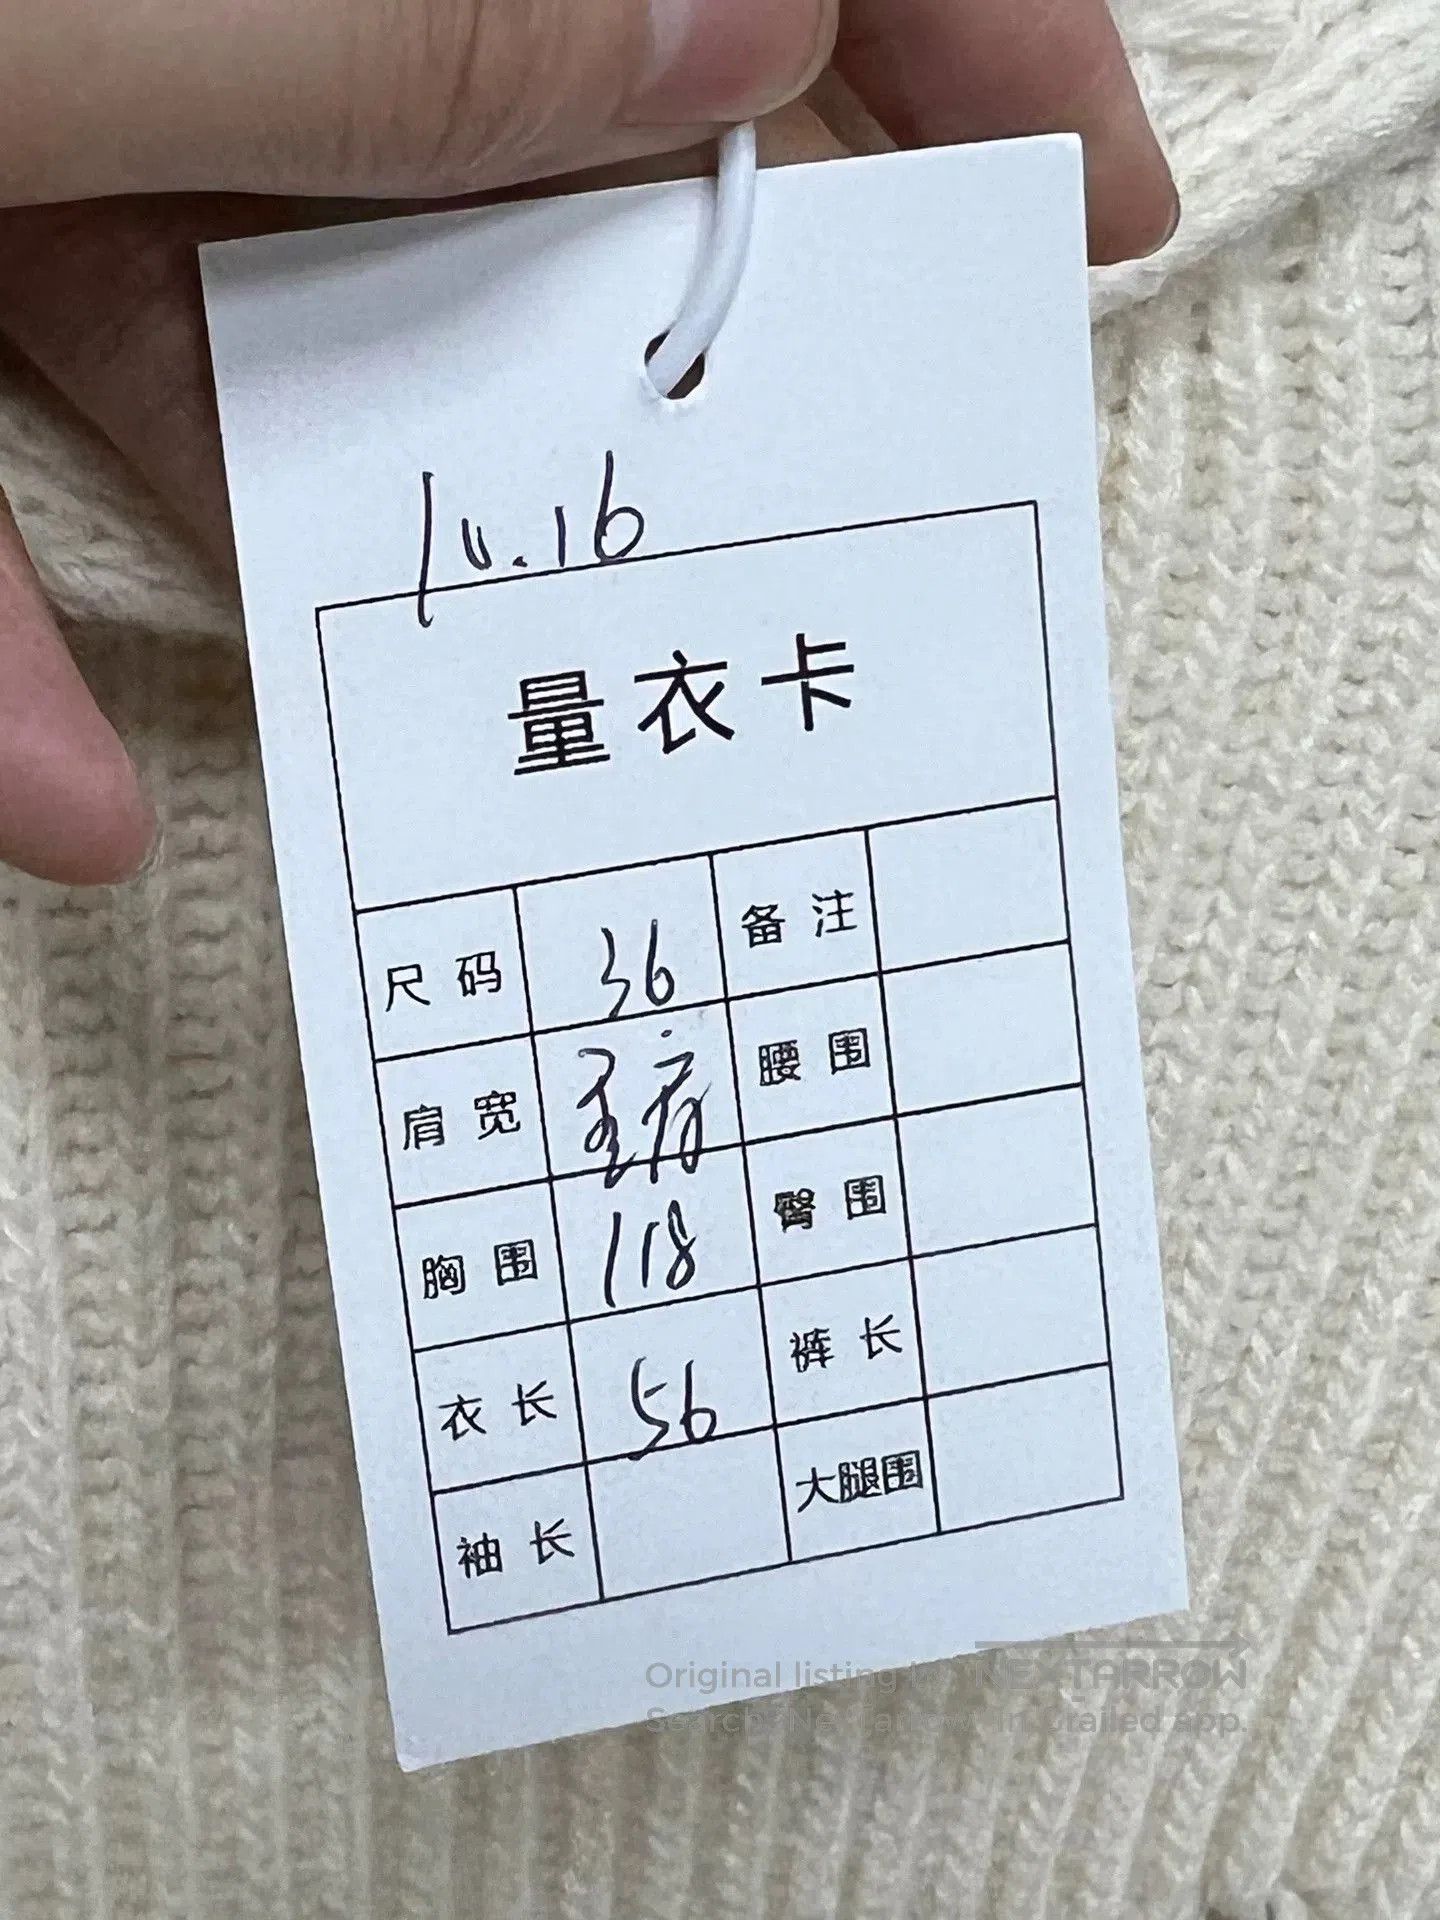 10.16
量衣卡
尺码 36 备注
肩宽 腰围
胸围 118 臀围
衣长 56 裤长
袖长 大腿围
Original listing in NEXTARROW
Search "NexTarrow" in Grailed app.